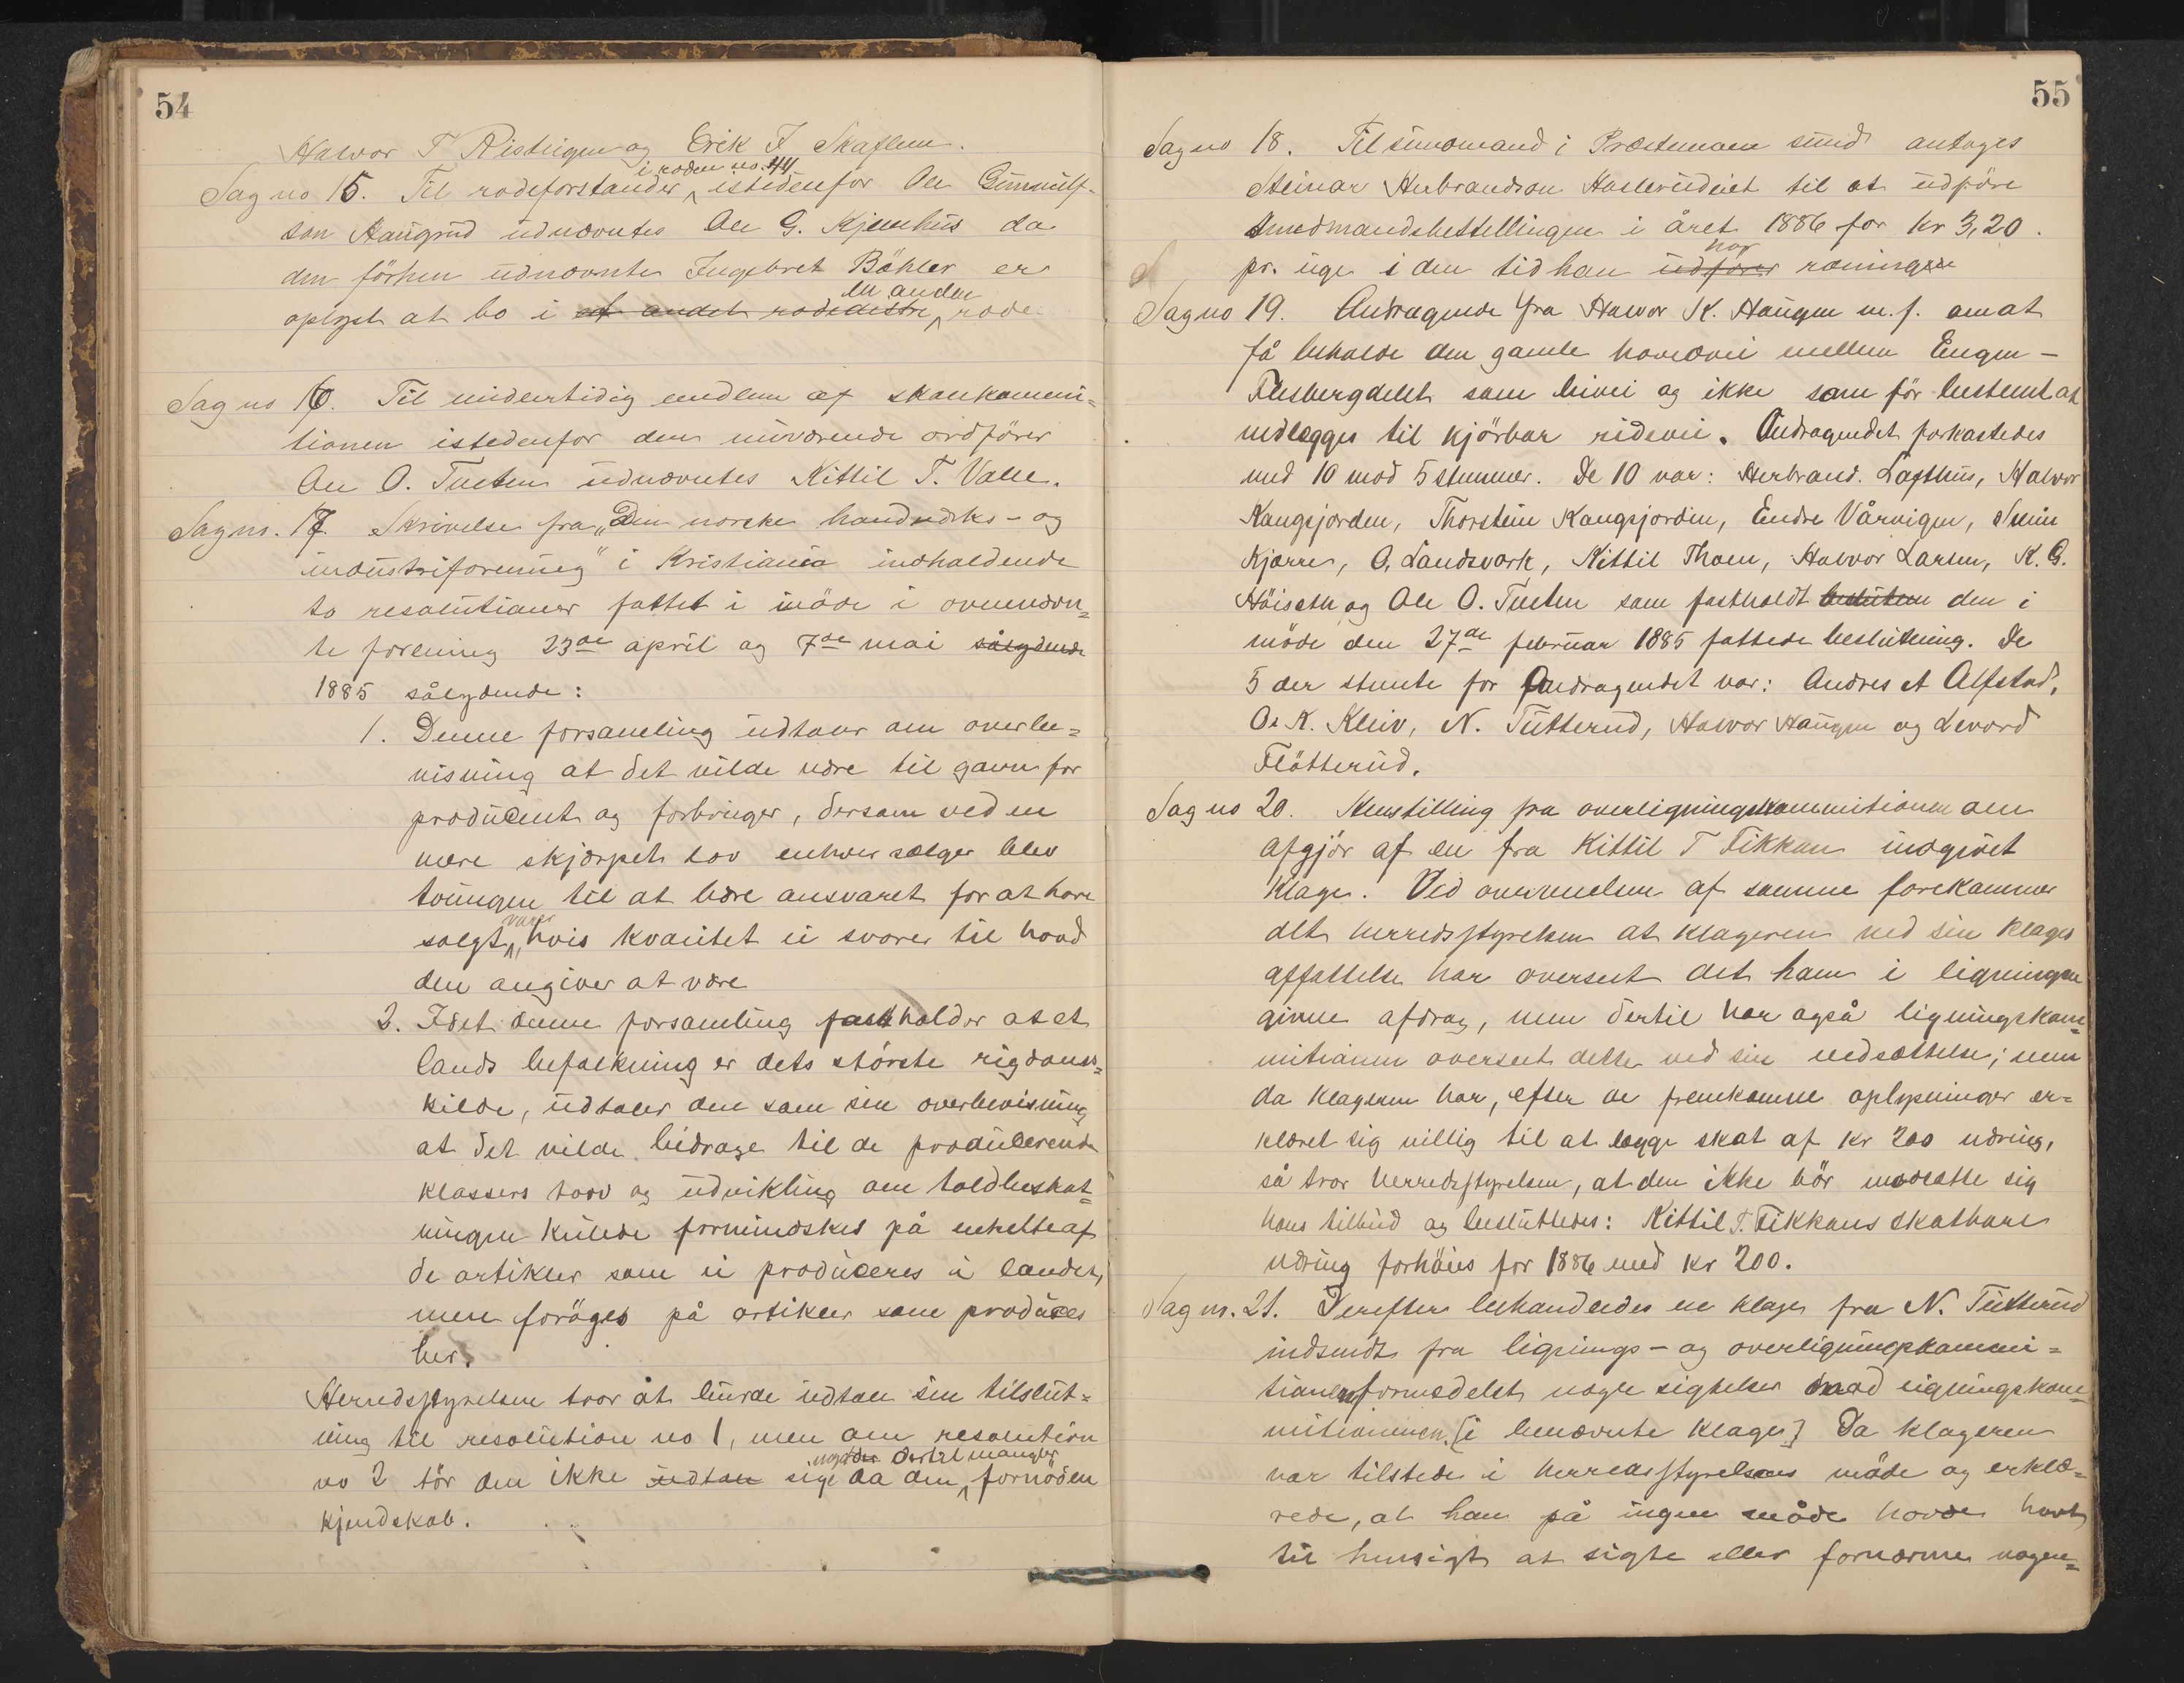 54
Halvor T Ristugun og Erik J Skaflem.
i roden no. 44
Sag no 15. Til rodeforstander istedenfor Ole Gunnulf-
søn Haugrud udnævntes Ole G. Kjemhus da
den förhen udnævnte Ingebret Böhler er
en anden
oplyst at bo i et andet rodedistr rode
Sag no 16. Til midlertidig medlem af skolekommi=
tionen istedenfor den nuværende ordförer
Ole O. Tueten udnævntes Kittil T. Valle.
Sag no. 17. Skrivelse fra "Den norske handverks- og
industriforening" i Kristiania indholdende
to resolutioner fattet i möde i ovennævn=
te forening 23de april og 7de mai sålydende
1885 sålydende:
1. Denne forsamling udtaler om overbe=
visning at det vilde være til gavn for
producent og forbruger, dersom ved en
mere skjærpet lov enhver sælger blev
tvungen til at bære ansvaret for at have
varer
solgt, hvis kvalitet ei svarer til hvad
den angiver at være
2. Idet denne forsamling fastholder at et
lands befolkning er dets største rigdoms=
kilde, udtaler den som sin overbevisning
at det vilde bidrage til de producerende
klassers tarv og udvikling om toldbeskat=
ningen kunde formindskes på enkelte af
de artikler som ei produceres i landet,
men foröges på artikler som produces
her.
Herredsstyrelsen tror at burde udtale sin tilslut=
ning til resolution no 1, men om resolution
noget da dertil mangler
no 2 tör den ikke udtale sige da den fornöden
kjendskab.
55
Sag no 18. Til sundmand i Præstemoen sund antages
Steinar Herbrandson Haslerudeiet til at udföre
sundmandsbestellingen i året 1886 for kr 3,20.
har
pr. uge i den tid han udförer roningen
Sag no 19. Andragende fra Halvor K. Haugen m. f. om at
få beholde den gamle hovedvei mellem Engen-
Flesbergdelet som bivei og ikke som för bestemt at
nedlægges til kjörbar ridevei. Andragendet forkastedes
med 10 mod 5 stemmer. De 10 var: Herbrand. Lafthus, Halvor
Kangsjorden, Thorstein Kangsjorden, Endre Vårvigen, Svein
Kjærre, O. Landsverk, Kittil Thoen, Halvor Larsen, K. G.
Höiseth og Ole O. Tueten som fastholdt beslutten den i
möde den 27de februar 1885 fattede beslutning. De
5 der stemte for Andragendet var: Andres A Alfstad,
Ole K. Kleiv, N. Tütterud, Halvor Haugen og Levord
Flötterud.
Sag no 20. Henstilling fra overligningskommitionen om
afgjör af en fra Kittil T Fikkan indgivet
klage. Ved overveielsen af samme forekommer
det herredsstyrelsen at klageren ved sin klages
affattelse har overseet det ham i ligningen
givne afdrag, men dertil har også ligningskom=
mitionen overseet dette ved sin nedsættelse; men
da klageren har, efter de fremkomne oplysninger er=
klæret sig villig til at lægge skat af kr 200 næring,
så tror herredsstyrelsen, at den ikke bör modsætte sig
hans tilbud og besluttedes: Kittil T. Fikkans skatbare
næring forhöies for 1886 med kr 200.
Sag no. 21. Derefter behandledes en klage fra N. Tütterud
indsendt fra lignings- og overligningskommi=
tionen formedelst nogle sigtelser mod ligningskom=
mitionen [i benævnte klage] Da klageren
var tilstede i herredsstyrelsens möde og erklæ=
rede, at han på ingen måde havde havt
til hensigt at sigte eller fornærme nogen=